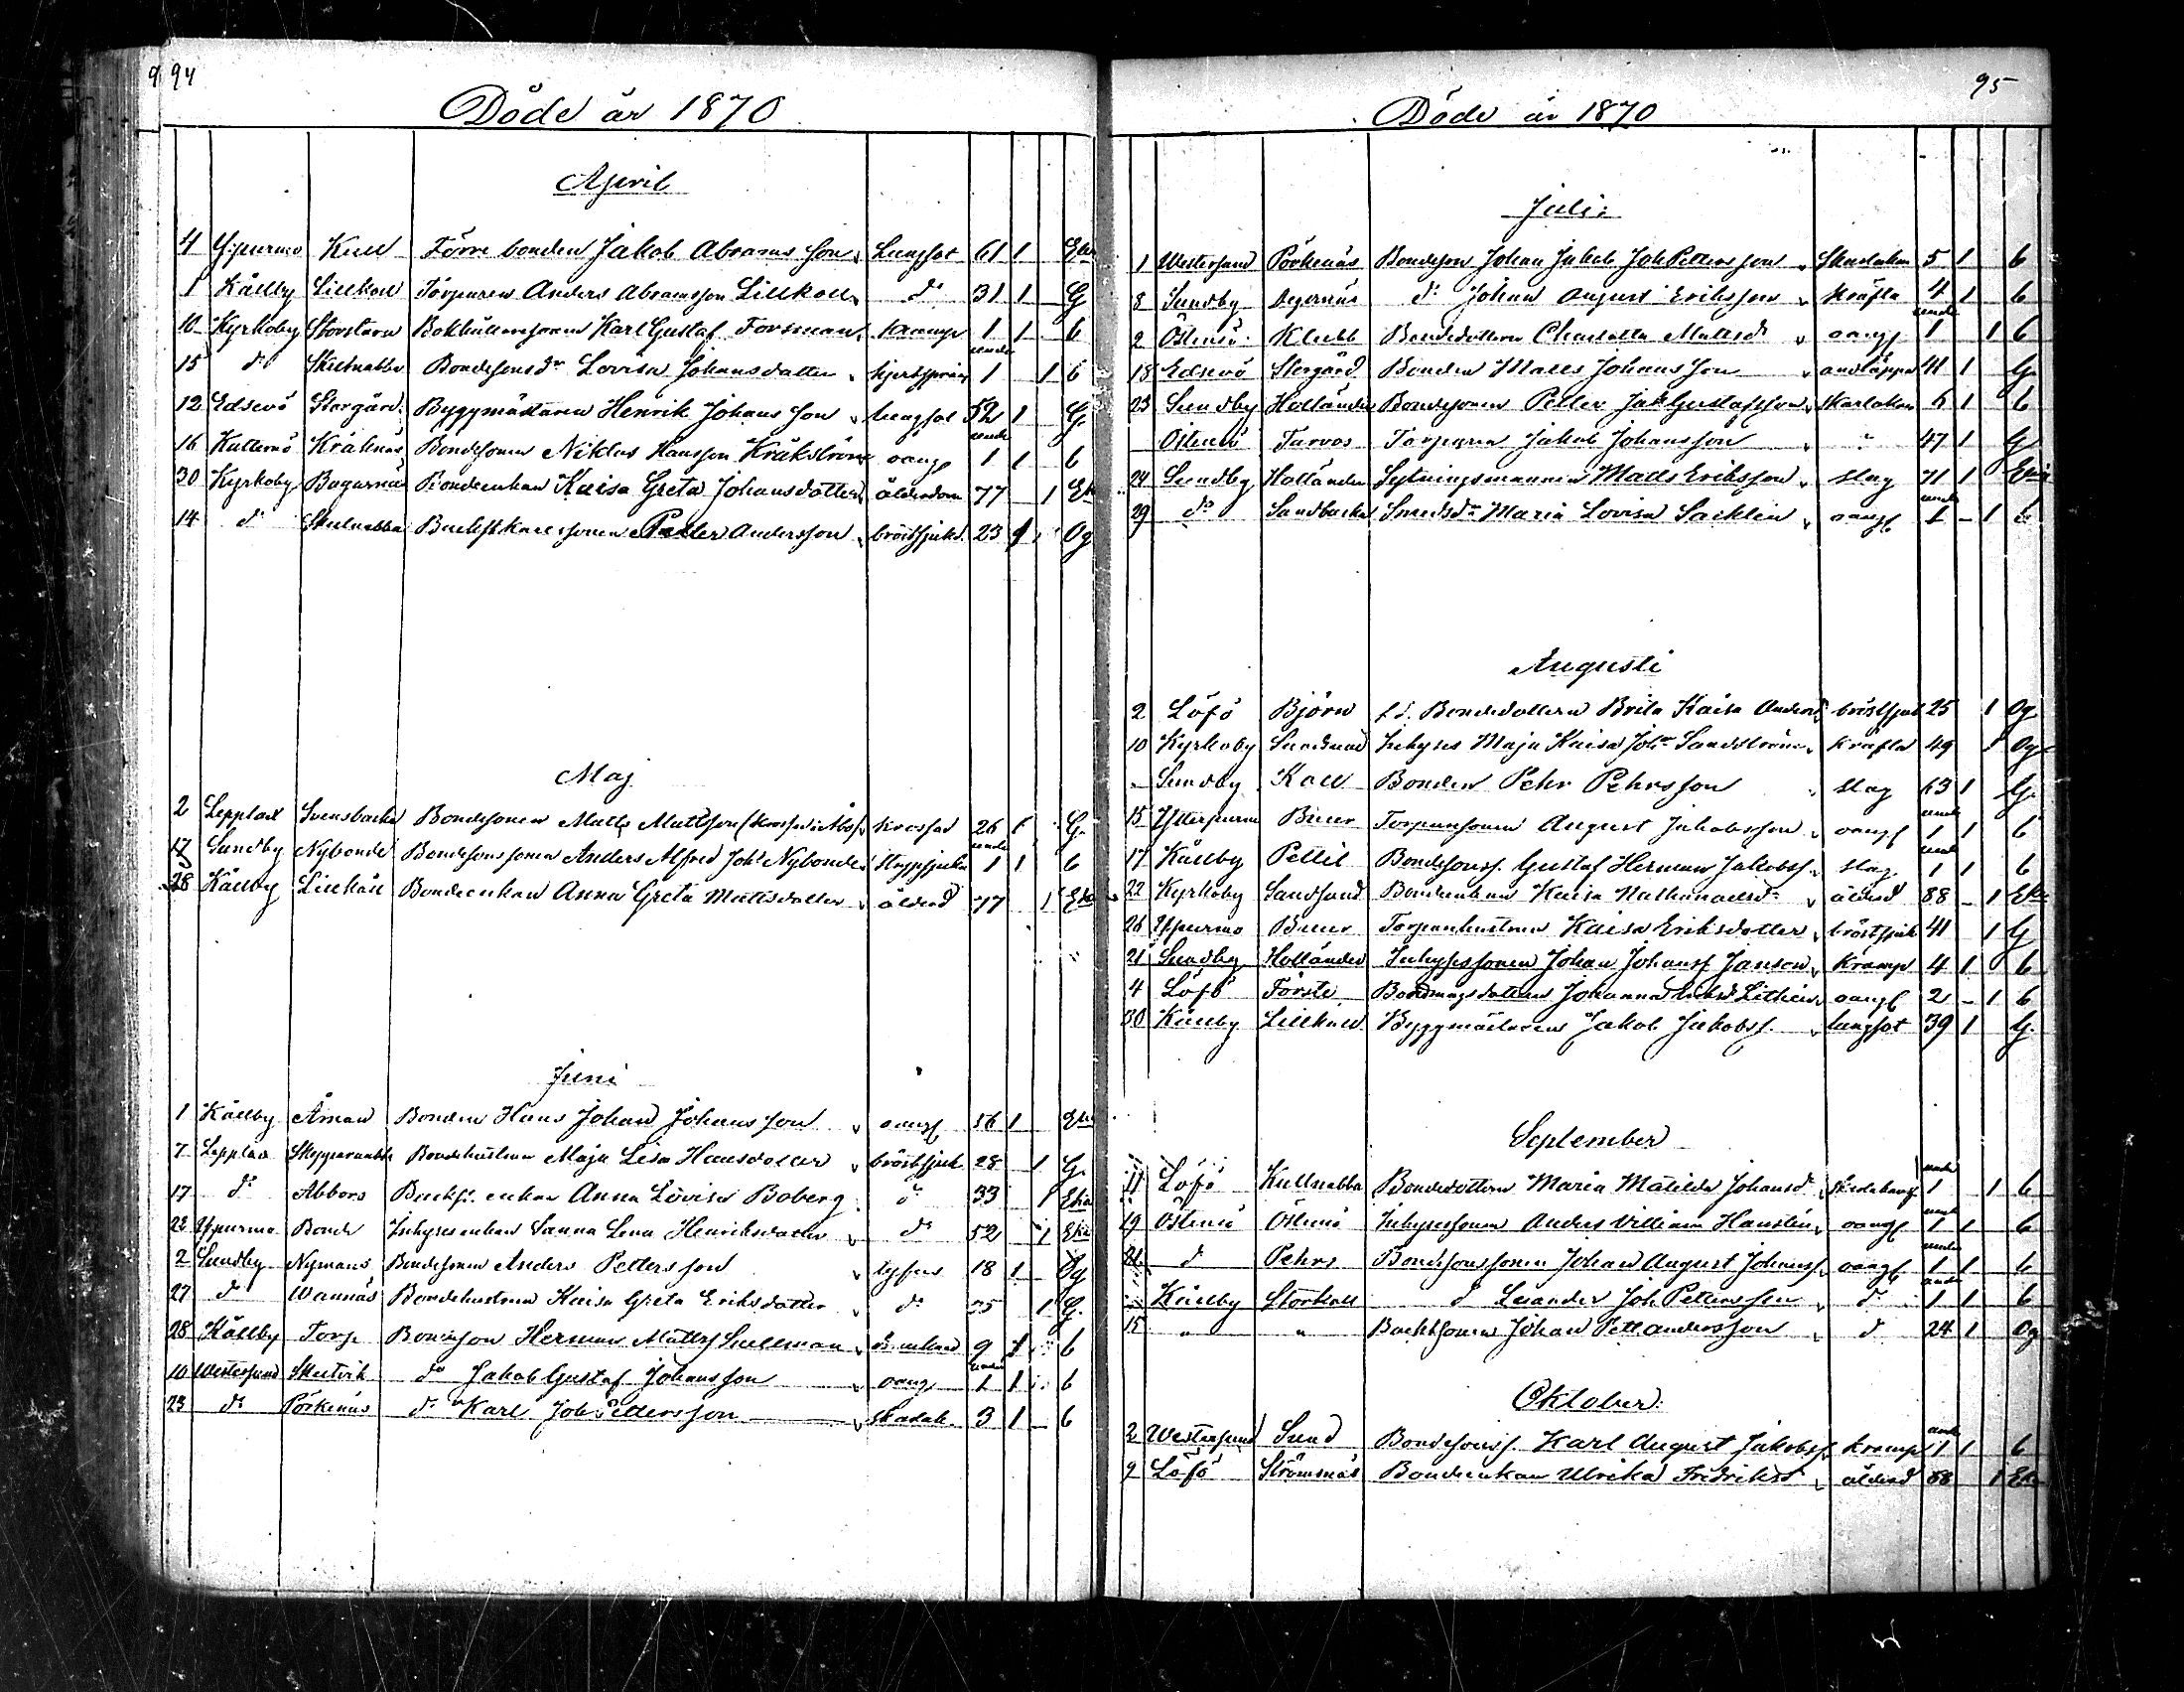 94
Döde år 1870
April
4 Y:purmo Kull Förre bonden Jakob Abrams son Lungsot 61 1 Ekl
1 Kållby Lillkåll Torparen Anders Abramsson Lillkåll d:o 31 1 G
10 Kyrkoby Storstaru Bokhållaresonen Karl Gustaf Forsman kramp 1 1 b
15 d:o Skutnabba Bondesonsd:r Lovisa Johansdotter under 1 1 b
12 Edsevö Storgård Byggmästaren Henrik Johans son lungsot 52 1 G.
16 Katternö Kråknäs Bondesonen Niklas Hansson Kråkström oangf under 1 1 b
30 Kyrkoby Bagarnäs Bondeenkan Kaisa Greta Johansdotter ålderdom 77 1 Ek
14 d:o Skutnabba Petter Andersson bröstsjukd. 23 1 Og
Maj
2 Lepplax Svensbacka Bondesonen Matts Mattsson krossad 26 1 G.
17 Sundby Nybonde Bondesonssonen Anders Alfred Joh: Nybonde strypsjuka under 1 1 b
28 Kållby Lillkåll Bondeenkan Anna Greta Mattsdotter ålderd 77 1 Eka
Juni
1 Kållby Åman Bonden Hans Johan Johans son oangf 56 1 Ekl
7 Lepplax Skepparnabb Bondehustrun Maja Lisa Hansdotter bröstsjuk 28 1 G.
17 d:o Abbors enkan Anna Lovisa Boberg d:o 33 1 Eka
22 Ypurmo Bonde Inhysesenkan Sanna Lena Henriksdotter d:o 52 1 Eka
2 Sundby Nymans Bondesonen Anders Petters son tyfus 18 1 Og
27 d:o Wannäs Bondehustrun Kaisa Greta Eriksdotter d:o 25 1 G.
28 Kållby Torp Bondeson Herman Mattss 9 1 b
10 Westersund Skutvik d:o Jakob Gustaf Johansson oangf under 1 1 b
23 d:o Pörkenäs d:o Karl Joh Pettersson skarlak. 3 1 b
95
Döde år 1870
Juli:
1 Westersund Pörkenäs Bondeson Johan Jakob Joh Petters son Skarlakan 5 1 b
8 Sundby Degernäs d:o Johan August Eriksson kräfta 4 1 b
2 Östensö Klubb Bondedottern Charlotta Mattsd oangf under 1 1 b
18 Edsevö Storgård Bonden Matts Johans son andtäppa 41 1 G.
23 Sundby Holländer Bondesonen Petter Jak Gustafsson skarlakan 6 1 b
Östensö Tarvos Torparen Jakob Johansson 47 1 G
24 Sundby Holländer Sytningsmannen Matts Eriksson slag 71 1
29 d:o Sandbacka Smedsd:r Maria Lovisa Sacklin oangf under 1 1 b
Augusti
2 Löfö Björn f.d. Bondedottern Brita Kaisa Andersd bröstsjuk 25 1 Og
10 Kyrkoby Sandsund Inhyses Maja Kaisa Joh:r Sandström kräfta 49 1 Og
Sundby Kåll Bonden Pehr Pehrsson slag 63 1 G.
15 Ytterpurm Buur Torparesonen August Jakobsson oangf under 1 1 b
17 Kållby Pettil Bondesonss. Gustaf Herman Jakobss. slag under 1 1 b
22 Kyrkoby Sandsund Bondeenkan Kaisa Nathanaelsd:r ålderd 88 1
26 Ypurmo Buur Torparehustrun Kaisa Eriksdotter bröstsjuk 41 1 G
21 Sundby Holländer Inhysessonen Johan Johanss Janson kramp 4 1 b
4 Löfö Förste Johanna oangf 2 1 b
30 Kållby Lillkåll Byggmästaren Jakob Jakobss. lungsot 39 1 G.
September
11 Löfö Kullnabba Bondedottern Maria Matilda Johansd under 1 1 b
19 Östensö Östensö Inhysessonen Anders William Hanslin oangf under 1 1 b
21 d Pehrs Bondesonssonen Johan August Johanss oangf under 1 1 b
Kållby Storkåll d Leander Joh Pettersson d:o under 1 1 b
15 " " Johan Pett Andersson d 24 1 Og
Oktober
2 Westersund Sund Bondesonss. Karl August Jakobss. kramp under 1 1 b
9 Löfö Strömsnäs Bondeenkan Ulrika Fredriksd ålderd 88 1 Eka